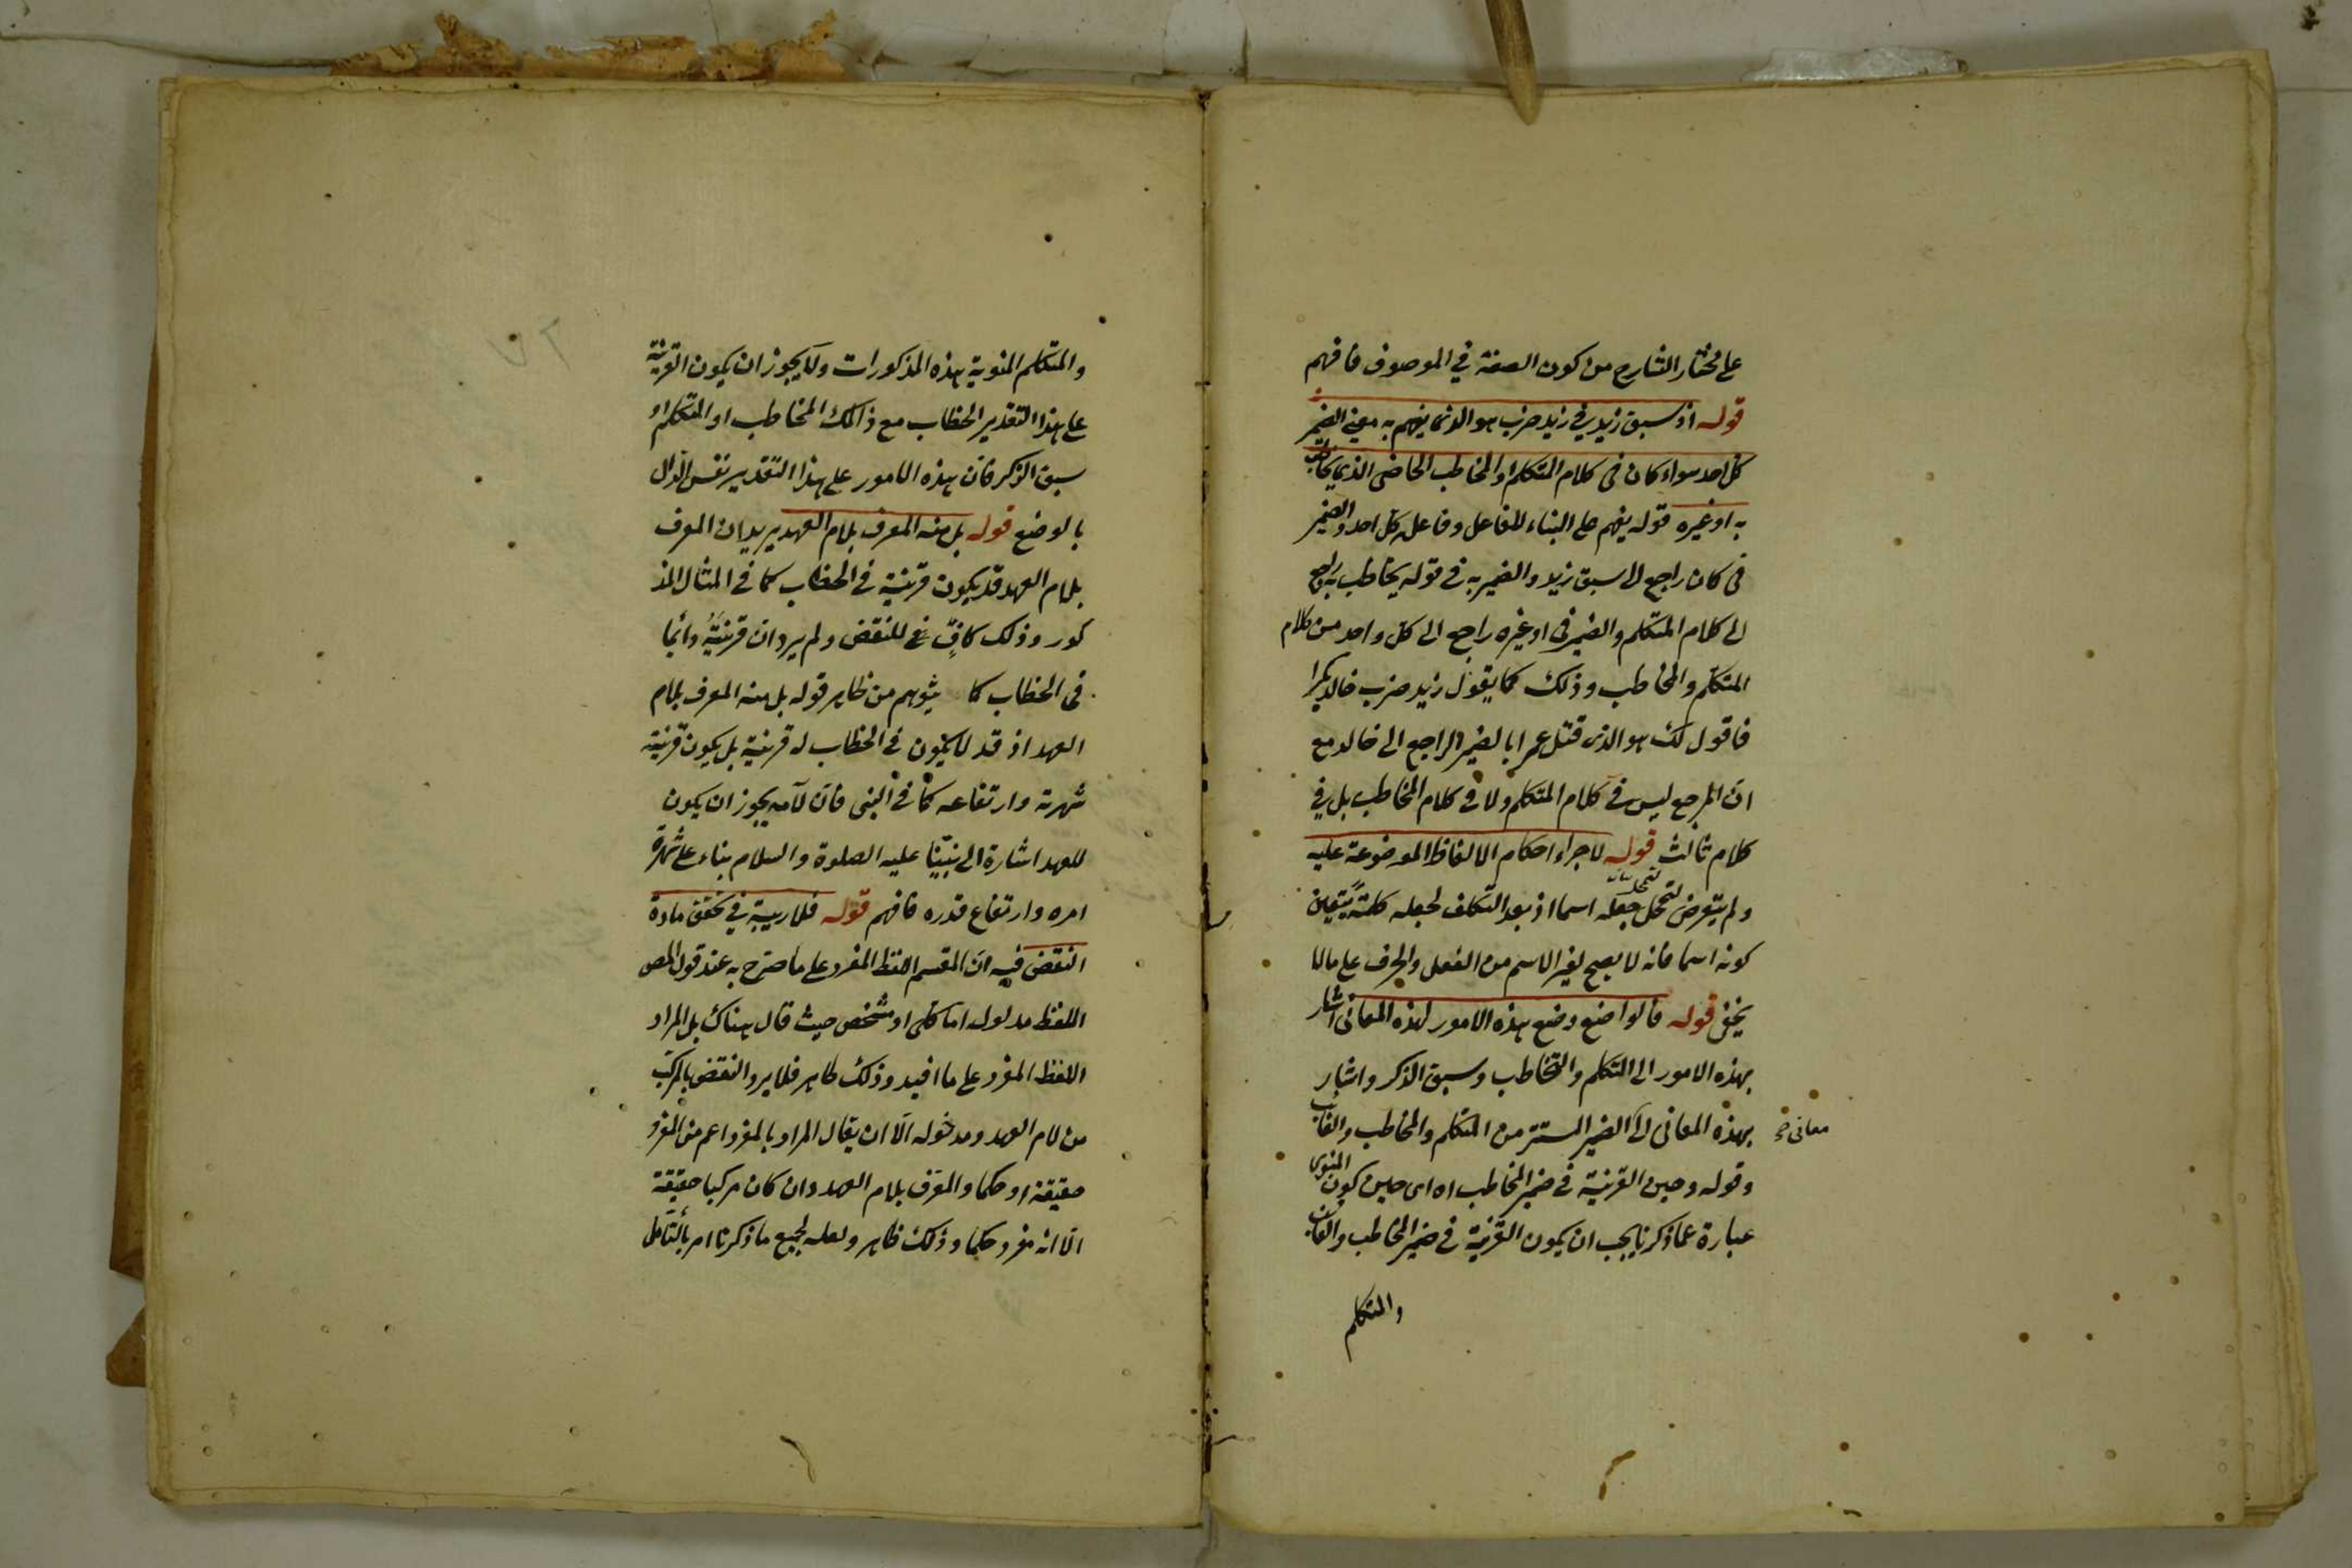 على مختار الشارح من كون الصفة في الموصوف فافهم
قوله اذ سبق زيد في زيد ضرب هو الذى يفهم به معنى الضمير
كل احد سواء كان فى كلام المتكلم او المخاطب الحاضر الذى يخاطب
به او غيره قوله يفهم على البناء للفاعل وفاعله كل احد والضمير
فى كان راجع الى سبق زيد والضمير به فى قوله يخاطب به راجع
الى كلام المتكلم والضمير فى او غيره راجع الى كل واحد من كلام
المتكلم والمخاطب وذلك كما يقول زيد ضرب خالد بكرا
فاقول لك هو الذى قتل عمرا بالضمير الراجع الى خالد مع
ان المرجع ليس فى كلام المتكلم ولا فى كلام المخاطب بل فى
كلام ثالث قوله لاجراء احكام الالفاظ الموضوعة عليه
ولم يتعرض لتمحل جعله اسما اذ بعد التكلف لجعله كلمة يتعين
كونه اسما فانه لا يصح لغير الاسم من الفعل والحرف على ما لا
يخفى قوله فالواضع وضع هذه الامور لهذه المعانى اشار
بهذه الامور الى المتكلم والتخاطب وسبق الذكر واشار
بهذه المعانى الى الضمير المستتر من المتكلم والمخاطب والغائب
معانى
وقوله وحين القرينة فى ضمير المخاطب اه اى حين كون المنوى
عبارة عما ذكرنا يجب ان يكون القرينة فى ضمير المخاطب والغائب
والمتكلم
والمتكلم المنوية هذه المذكورات ولا يجوز ان يكون القرينة
على هذا التقدير الخطاب مع ذلك المخاطب او المتكلم او
سبق الذكر فان هذه الامور على هذا التقدير نفس الدال
بالوضع قوله بل منه المعرف بلام العهد يريد ان المعرف
بلام العهد قد يكون قرينية فى الخطاب كما فى المثال المذ
كور وذلك كاف فى للنقض ولم يرد ان قرينة دائما
فى الخطاب كما يتوهم من ظاهر قوله بل منه المعرف بلام
العهد اذ قد لا يكون فى الخطاب له قرينية بل يكون قرينة
شهرته وارتفاعه كما فى النبى فان لامه يجوز ان يكون
للعهد اشارة الى نبينا عليه الصلوة والسلام بناء على شهرة
امره وارتفاع قدره فافهم قوله فلا ريبة فى تحقق مادة
النقض فيه ان المقسم اللفظ المفرد على ما صرح به عند قول المص
اللفظ مدلوله اما كلى او مشخص حيث قال هناك بل المراد
اللفظ المفرد على ما افيد وذلك ظاهر فلا يرد النقض بالمركب
من لام العهد ومدخوله الا ان يقال المراد بالمفرد اعم من المفرد
حقيقة او حكما والمعرف بلام العهد وان كان مركبا حقيقة
الا انه مفرد حكما وذلك ظاهر ولعله لجميع ما ذكرنا امر بالتأمل